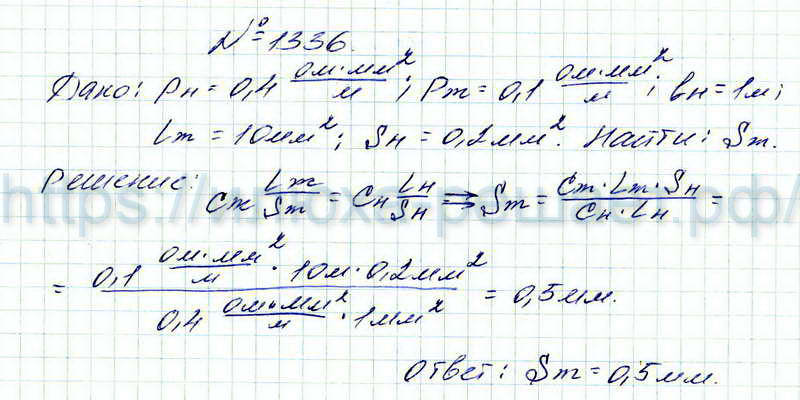 № 1336.
Дано: ρн = 0,4 Ом·мм²/м; ρт = 0,1 Ом·мм²/м; lн = 1м;
Lт = 10мм²; Sн = 0,2мм². Найти: Sт.
Решение: Cт Lт/Sт = Cн Lн/Sн ⇒ Sт = Cт·Lт·Sн/Cн·Lн =
= 0,1 Ом·мм²/м · 10м·0,2мм² / 0,4 Ом·мм²/м · 1мм² = 0,5мм.
Ответ: Sт = 0,5мм.